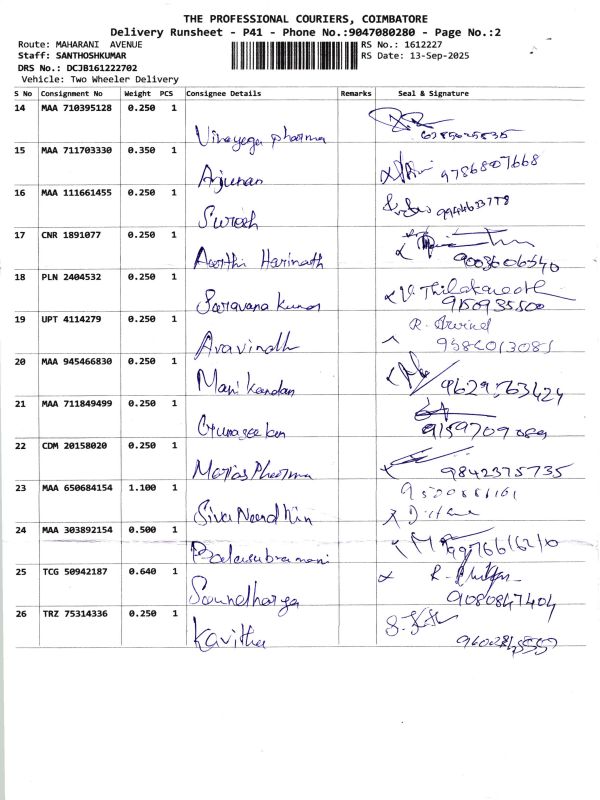 THE PROFESSIONAL COURIERS, COIMBATORE
Delivery Runsheet - P41 - Phone No.:9047080280 - Page No.:2
Route: MAHARANI AVENUE RS No.: 1612227
Staff: SANTHOSHKUMAR RS Date: 13-Sep-2025
DRS No.: DCJB161222702
Vehicle: Two Wheeler Delivery
S No Consignment No Weight PCS Consignee Details Remarks Seal & Signature
14 MAA 710395128 0.250 1
Vinayaga pharma
15 MAA 711703330 0.350 1
Arjunan 9786807668
16 MAA 111661455 0.250 1
Suresh
17 CNR 1891077 0.250 1
Aarthi Harinath 9003606340
18 PLN 2404532 0.250 1
Saravana kumar V. Thilakanath
9150935500
19 UPT 4114279 0.250 1 R. Arvind
Aravindh
20 MAA 945466830 0.250 1
Manikandan 9629563424
21 MAA 711849499 0.250 1
Gunaseekan 9159709089
22 CDM 20158020 0.250 1
Matias Pharma 9842375735
23 MAA 650684154 1.100 1
24 MAA 303892154 0.500 1
Balasubramani
25 TCG 50942187 0.640 1
Soundharya 9080847404
26 TRZ 75314336 0.250 1
Kavitha